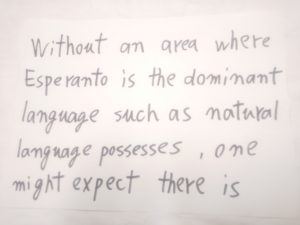 Without an area where
Esperanto is the dominant
language such as natural
language possesses , one
might expect there is